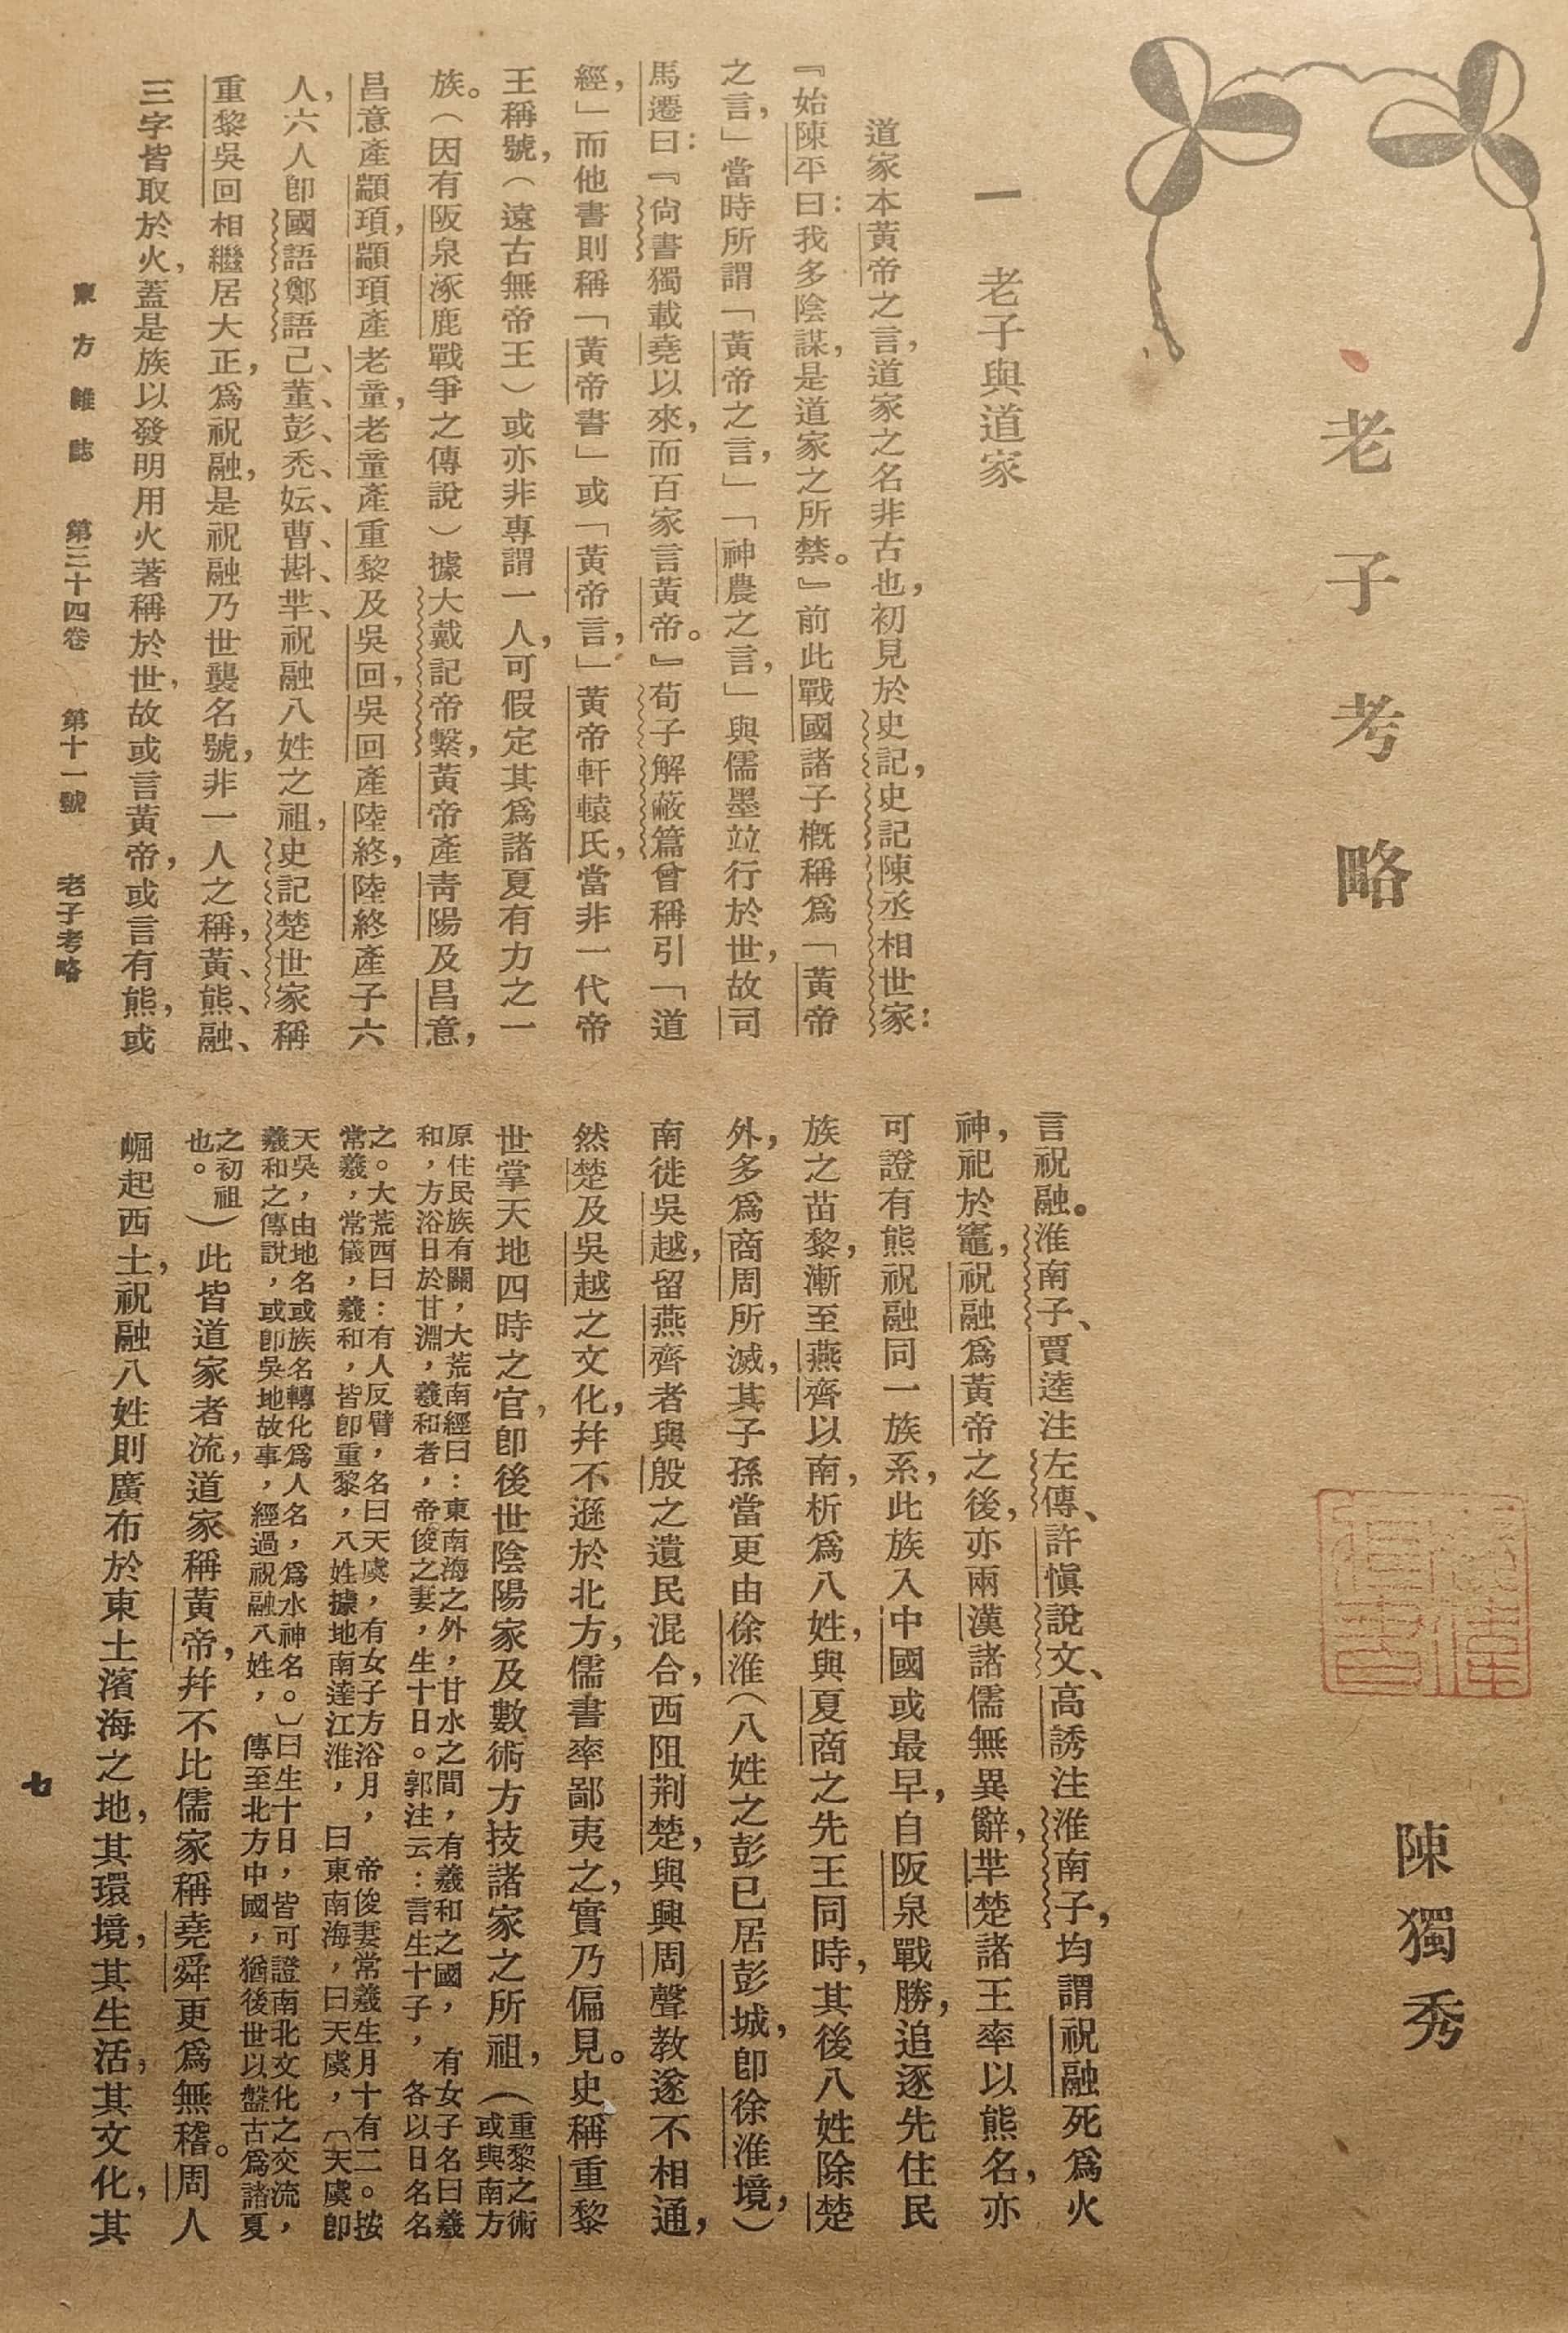 老子考略
陳獨秀
一　老子與道家
道家本黃帝之言，道家之名非古也，初見於史記，史記陳丞相世家：
『始陳平曰：我多陰謀，是道家之所禁。』前此戰國諸子概稱爲「黃帝
之言，」當時所謂「黃帝之言，」「神農之言，」與儒墨竝行於世，故司
馬遷曰：『尙書獨載堯以來，而百家言黃帝。』荀子解蔽篇曾稱引「道
經，」而他書則稱「黃帝書」或「黃帝言，」黃帝軒轅氏，當非一代帝
王稱號，（遠古無帝王）或亦非專謂一人，可假定其爲諸夏有力之一
族。（因有阪泉涿鹿戰爭之傳說）據大戴記帝繫，黃帝產靑陽及昌意，
昌意產顓頊，顓頊產老童，老童產重黎及吳回，吳回產陸終，陸終產子六
人，六人卽國語鄭語己、董、彭、禿、妘、曹、斟、芈、祝融八姓之祖，史記楚世家稱
重黎吳回相繼居大正，爲祝融，是祝融乃世襲名號，非一人之稱，黃、熊、融、
三字皆取於火，蓋是族以發明用火著稱於世，故或言黃帝，或言有熊，或
言祝融。淮南子、賈逵注左傳、許愼說文、高誘注淮南子，均謂祝融死爲火
神，祀於竈，祝融爲黃帝之後，亦兩漢諸儒無異辭，芈楚諸王率以熊名，亦
可證有熊祝融同一族系，此族入中國或最早，自阪泉戰勝，追逐先住民
族之苗黎，漸至燕齊以南，析爲八姓，與夏商之先王同時，其後八姓除楚
外，多爲商周所滅，其子孫當更由徐淮（八姓之彭已居彭城，卽徐淮境，）
南徙吳越，留燕齊者與殷之遺民混合，西阻荆楚，與興周聲教遂不相通，
然楚及吳越之文化，幷不遜於北方，儒書率鄙夷之，實乃偏見。史稱重黎
世掌天地四時之官，卽後世陰陽家及數術方技諸家之所祖，（重黎之術
或與南方
原住民族有關，大荒南經曰：東南海之外，甘水之間，有羲和之國，有女子名曰羲
和，方浴日於甘淵，羲和者，帝俊之妻，生十日。郭注云：言生十子，各以日名名
之。大荒西曰：有人反臂，名曰天虞，有女子方浴月，帝俊妻常羲生月十有二。按
常羲，常儀，羲和，皆卽重黎，八姓據地南達江淮，曰東南海，曰天虞，〔天虞卽
天吳，由地名或族名轉化爲人名，爲水神名。〕曰生十日，皆可證南北文化之交流，
羲和之傳說，或卽吳地故事，經過祝融八姓，傳至北方中國，猶後世以盤古爲諸夏
之初祖
也。）此皆道家者流，道家稱黃帝，幷不比儒家稱堯舜更爲無稽。周人
崛起西土，祝融八姓則廣布於東土濱海之地，其環境，其生活，其文化，其
東方雜誌　第三十四卷　第十一號　老子考略
七